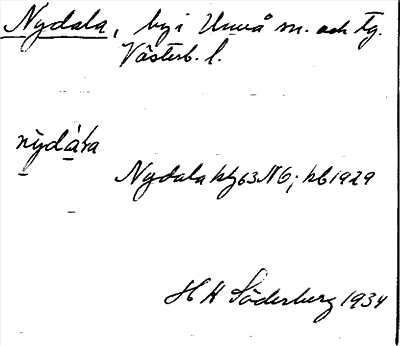 Nydala, by i Umeå sn. och tg.
Västerb. l.
nỳdáɫa
Nydala hfl 63 NO; kb 1929
H H Söderberg 1934